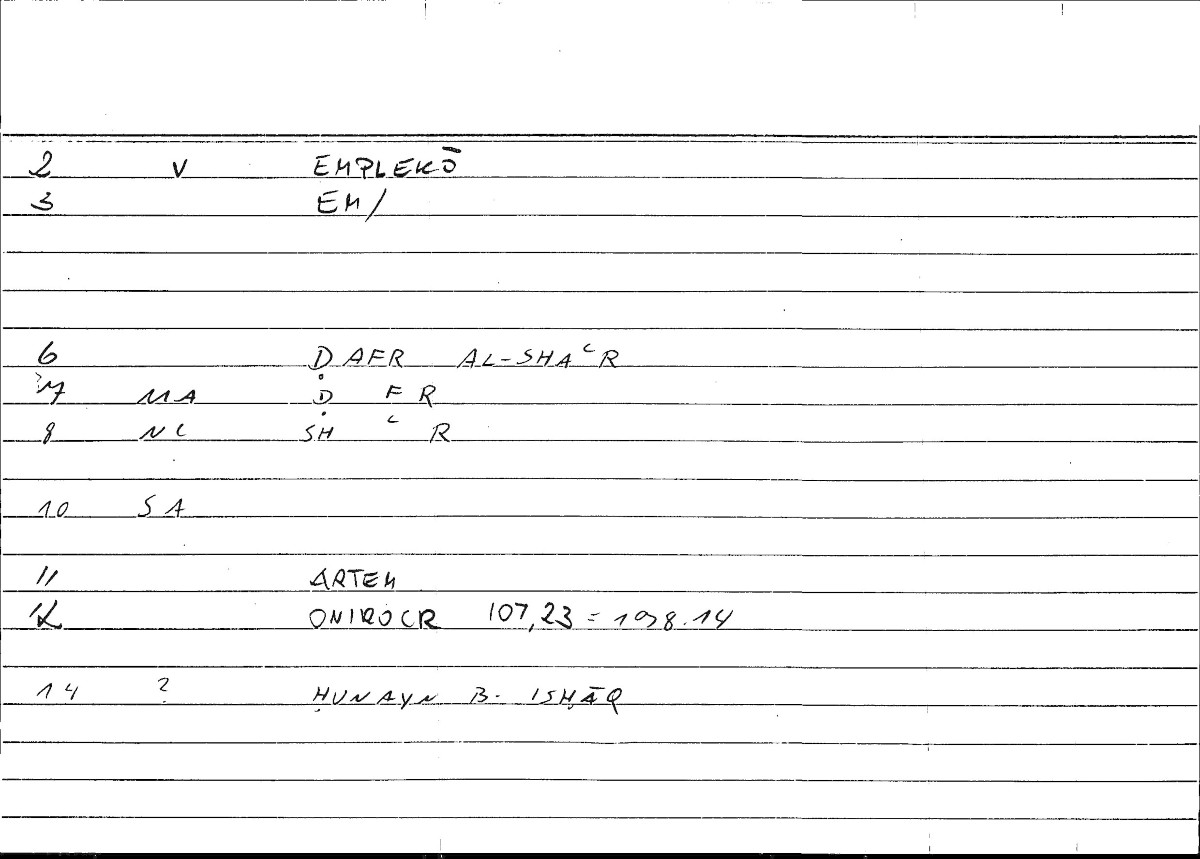 2 V EMPLEKŌ
3 EM/
6 ḌAFR AL-SHAʿR
7 MA Ḍ FR
8 NC SH ʿ R
10 SA
11 ARTEM
12 ONIROCR 107,23 = 198.14
14 ? ḤUNAYN B. ISḤĀQ